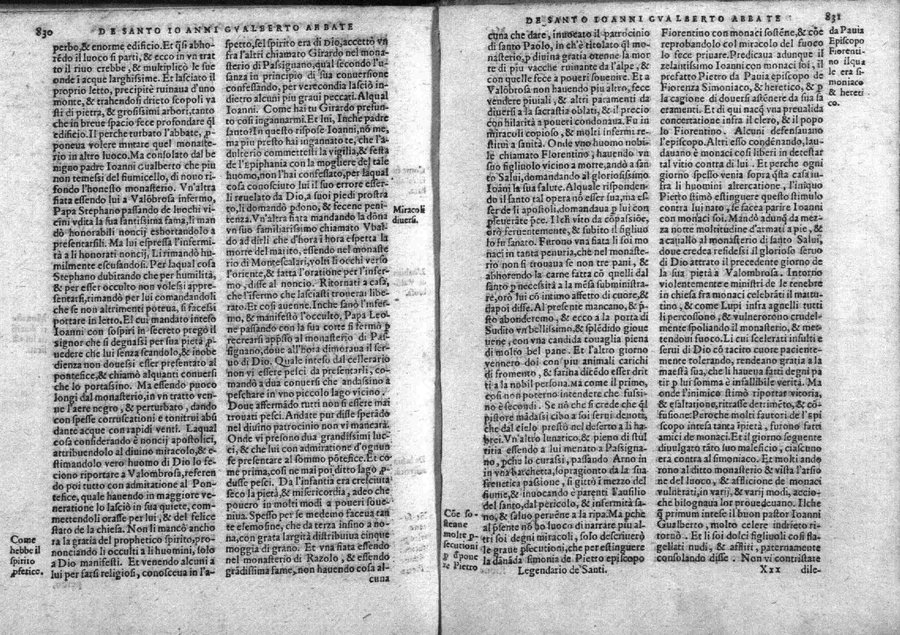 830 DE SANTO IOANNI GVALBERTO ABBATE
perbo,& enorme edificio. Et q̃si abho-
rẽdo il luoco si parti, & ecco in vn trat
to il riuo crebbe, & multiplicò le sue
onde i acque larghissime. Et lasciato il
proprio letto, precipite ruinaua d'vno
monte, & trahendosi drieto scopoli va
sti di pietra, & grossissimi arbori, tanto
che in breue spacio fece profondare q̃l
edificio. Il perche turbato l'abbate, ꝓ-
poneua volere mutare quel monaste-
rio in altro luoco. Ma consolato dal be
nigno padre Ioanni Gualberto che piu
non temessi del fiumicello, di nouo ri-
fondo l'honesto monasterio. Vn'altra
fiata essendo lui a Valõbrosa infermo,
Papa Stephano passando de luochi vi-
cini vdita la sua santissima fama, li man
dò honorabili noncij eshortandolo a
presentarsili. Ma lui espressa l'infermi-
tà a li honorati noncij, Li rimandò hu-
milmente escusandosi. Per laqual cosa
Stephano dubitando che per humilità,
& per esser occulto non volessi appre-
sentarsi, rimandò per lui comandandoli
che se non altrimenti poteua, si facessi
portare in letto. El cui mandato inteso
Ioanni con sospiri in secreto pregò il
signor che si degnassi per sua pietà, ꝓ-
uedere che lui senza scandolo, & inobe
dienza non douessi esser presentato al
pontefice,& chiamò alquanti conuersi
che lo portassino. Ma essendo puoco
longi dal monasterio, in vn tratto ven-
ne l'aere negro, & perturbato, dando
con spesse corruscationi e tonitrui abũ
dante acque con rapidi venti. Laqual
cosa considerando è noncij apostolici,
attribuendolo al diuino miracolo, & e-
stimandolo vero huomo di Dio lo fe-
ciono riportare a Valombrosa, referen
do poi tutto con admiratione al Pon-
tefice, quale hauendo in maggiore ve-
neratione lo lasciò in sua quiete, com-
mettendoli orasse per lui, & del felice
stato de la chiesa. Non li mancò ancho
ra la gratia del prophetico spirito, pro-
nonciando li occulti a li huomini, solo
a Dio manifesti. Et venendo alcuni a
lui per farsi religiosi, conosceua in l'a-
Come
hebbe il
spirito
ꝓfetico.
spetto, sel spirito era di Dio, accettò vn
fra l'altri chiamato Girardo nel mona-
sterio di Passignano, qual secondo l'u-
sanza in principio di sua conuersione
confessando, per verecõdia lasciò in-
dietro alcuni piu graui peccati. Alqual
Ioanni. Come hai tu Girardo presun-
to cosi ingannarmi. Et lui, Inche padre
santo? In questo rispose Ioanni, nõ me,
ma piu presto hai ingannato te, che l'a-
dulterio commettesti la vigilia, & festa
de l'Epiphania con la mogliere del tale
huomo, non l'hai confessato, per laqual
cosa conosciuto lui il suo errore esser-
li reuelato da Dio, a suoi piedi prostra
to, li domandò pdono, & fecene peni-
tenza. Vn'altra fiata mandando la dõna
vn suo familiarissimo chiamato Vbal-
do ad dirli che d'hora i hora espetta la
morte del marito, essendo nel monaste
rio di Montescalari, volti li occhi verso
l'oriente, & fatta l'oratione per l'infer-
mo, disse al noncio. Ritornati a casa,
che l'infermo che lasciasti trouerai libe-
rato. Et cosi auenne. Inche sanò l'infer-
mo, & manifestò l'occulto. Papa Leo-
ne passando con la sua corte si fermò ꝑ
recrearsi appsso al monasterio di Pas-
signano, doue all'hora dimoraua il ser-
uo di Dio. Quale inteso dal cellerario
non vi essere pesci da presentarli, co-
mandò a duo conuersi che andassino a
peschare in vno piccolo lago vicino.
Doue affermãdo tutti non si essere mai
trouati pesci. Andate pur disse sperãdo
nel diuino patrocinio non vi mancarà.
Onde vi presono duo grandissimi luc-
ci, & che lui con admiratione d'ognun
fe presentare al sommo põtefice. Et co
me prima, cosi ne mai poi ditto lago ꝓ
dusse pesci. Da l'infantia era cresciuta
seco la pietà, & misericordia, adeo che
pouero in molti modi a poueri soue-
niua. Spesso per se medemo faceua tan
te elemosine, che da terza insino a no-
na, con grata largità distribuiua cinque
moggia di grano. Et vna fiata essendo
nel monasterio di Razolo, & essendo
grãdissima fame, non hauendo cosa al-
cuna
Miracoli
diuersi.
DE SANTO IOANNI GVALBERTO ABBATE 831
cuna che dare, inuocato il patrocinio
di santo Paolo, in ch'è titolato q̃l mo-
nasterio, ꝑ diuina gratia ottenne la mor
te di piu vacche ruinante da l'alpe, &
con quelle fece a poueri souenire. Et a
Valõbrosa non hauendo piu altro, fece
vendere piuiali, & altri paramenti da
diuersi a la sacrastia oblati, & il precio
con hilarità a poueri condonaua. Fu in
miracoli copioso, & molti infermi re-
stitui a sanità. Onde vno huomo nobi-
le chiamato Florentino, hauendo vn
suo figliuolo vicino a morte, andò a san
to Salui, domandando al gloriosissimo
Ioãni la sua salute. Alquale risponden-
do il santo tal opera nõ esser sua, ma es
ser de li apostoli, domandaua ꝑ lui con
ꝑseuerãte ꝑce. Ilche visto da cõpassiõe,
orò feruentemente, & subito il figliuo
lo fu sanato. Furono vna fiata li soi mo
naci in tanta penuria, che nel monaste-
rio non si trouaua se non tre pani, &
ashorendo la carne fatta cõ quelli dal
santo ꝑ necessità a la mẽsa subministra-
re, orò lui cõ intimo affetto di cuore, &
da poi disse. Al presente mancano, & p̃-
sto abonderono, & ecco a la porta di
Sudito vn bellissimo, & splẽdido gioue
uene, con vna candida touaglia piena
di molto bel pane. Et l'altro giorno
vennero doi con piu animali carichi
di fromento, & farina dicẽdo esser drit
ti a la nobil persona. ma come il primo,
cosi non poterno intendere che fussi-
no è secondi. Se nõ che si crede che q̃l
pistore madasi cibo a soi serui denote,
che dal cielo prestò nel deserto a li ha-
brei. Vn'altro lunatico, & pieno di stul
titia essendo a lui menato a Passigna-
no, ꝑchè lo curassi, passando Arno in
in vna barchetta, lo pragionto da la sua
frenetica passione, si gittò i mezzo del
fiume, & inuocando è parenti l'ausilio
del santo, dal pericolo, & infermità sa-
no, & saluo peruẽne a la ripa. Ma pche
al p̃sente nõ ho luoco di narrare piu al-
tri soi degni miracoli, solo descriuerò
le graue p̃secutioni, che per estinguere
la dãnada simonia de Pietro episcopo
Cõe so-
steane
molte p̃-
secutioni
ꝑ ꝓpone
re Pietro
Legendario de' Santi.
Fiorentino con monaci sostẽne, & cõe
reprobandolo col miracolo del fuoco
lo fece priuare. Predicaua adunque il
zelantissimo Ioanni con monaci soi, il
prefatto Pietro da Pauia episcopo de
Fiorenza Simoniaco, & heretico, & ꝑ
la cagione di diuersi astener da sua sa
cramenti. Et di qui nacq̃ vna preualida
concertatione infra il clero, & il popo
lo Fiorentino. Alcuni defensauano
l'episcopo. Altri esso cõdẽnando, lau-
dauano è monaci cosi liberi in detestar
tal vitio contra di lui. Et perche ogni
giorno spesso venia sopra q̃sta casa in
fra li huomini altercatione, l'iniquo
Pietro stimò estinguere questo stimulo
contra lui nato, se facea partire Ioanni
con monaci soi. Mandò adunq̃ da mez-
za notte moltitudine d'armati a pie, &
a cauallo al monasterio di santo Salui,
doue credea residessi il glorioso seruo
di Dio astrato il precedente giorno de
la sua pietà a Valombrosa. Intorno
violentemente e ministri de le tenebre
in chiesa fra monaci celebrãti il mattu-
tino, & come Lupi infra agnelli tutti
li percossono, & vulnerorono crudel-
mente spoliando il monasterio, & met-
tendoui fuoco. Li cui scelerati insulti e
serui di Dio cõ tacito cuore patiente-
mente tolerando, rendeano gratia a la
maestà sua, che li haueua fatti degni pa
tir ꝑ lui somma e infalibile verità. Ma
onde l'inimico stimò riportar vitoria,
& esaltatione, ritrasse detrimẽto, & cõ-
fusione: Peroche molti fautori de l'epi
scopo intesa tanta ipietà, furono fatti
amici de monaci. Et il giorno seguente
diuulgato tãto suo maleficio, ciascuno
era contra al simoniaco. Et molti ando
rono al ditto monasterio & vista l'arsio
ne del luoco, & afflicione de monaci
vulnerati, in varij, & varij modi, accio-
che bisognaua lor prouedeuano. Ilche
q̃ primum intese il buon pastor Ioanni
Gualberto, molto celere indrieto ri-
tornò. Et li soi dolci figliuoli cosi fla-
gellati nudi, & affliti, paternamente
consolando disse. Non vi contristate
Xxx dile-
da Pauia
Episcopo
Fiorenti-
no il qua
le era si-
moniaco
& hereti
co.